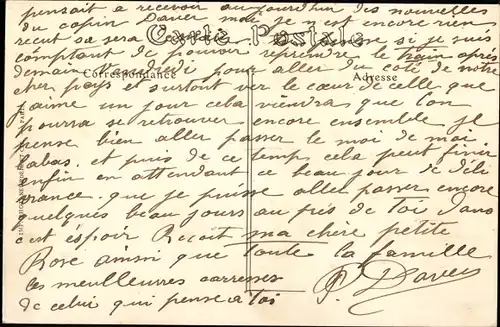 pensait a recevoir aujourdhui des nouvelles
du copin Daver mdi je n'est encore rien
recut sa sera pour si je suis
Carte Postale
comptant de pouvoir reprendre le train après
Correspondance
Adresse
demain Midi pour aller du coté de notre
cher pays et surtout ver le cœur de celle que
j'aime un jour cela viendras que l'on
pourra se retrouver encore ensemble je
pense bien aller passer le moi de mai
labas. et puis de ce temps cela peut finir
enfin en attendant ce beau jour de déli
vrance que je puisse aller passer encore
quelques beau jours au près de toi Dans
c'est éspoir Recoit ma chère petite
Rose ainsi que toute la famille
les meulleures carresses
de celui qui pense a toi
P. Daver